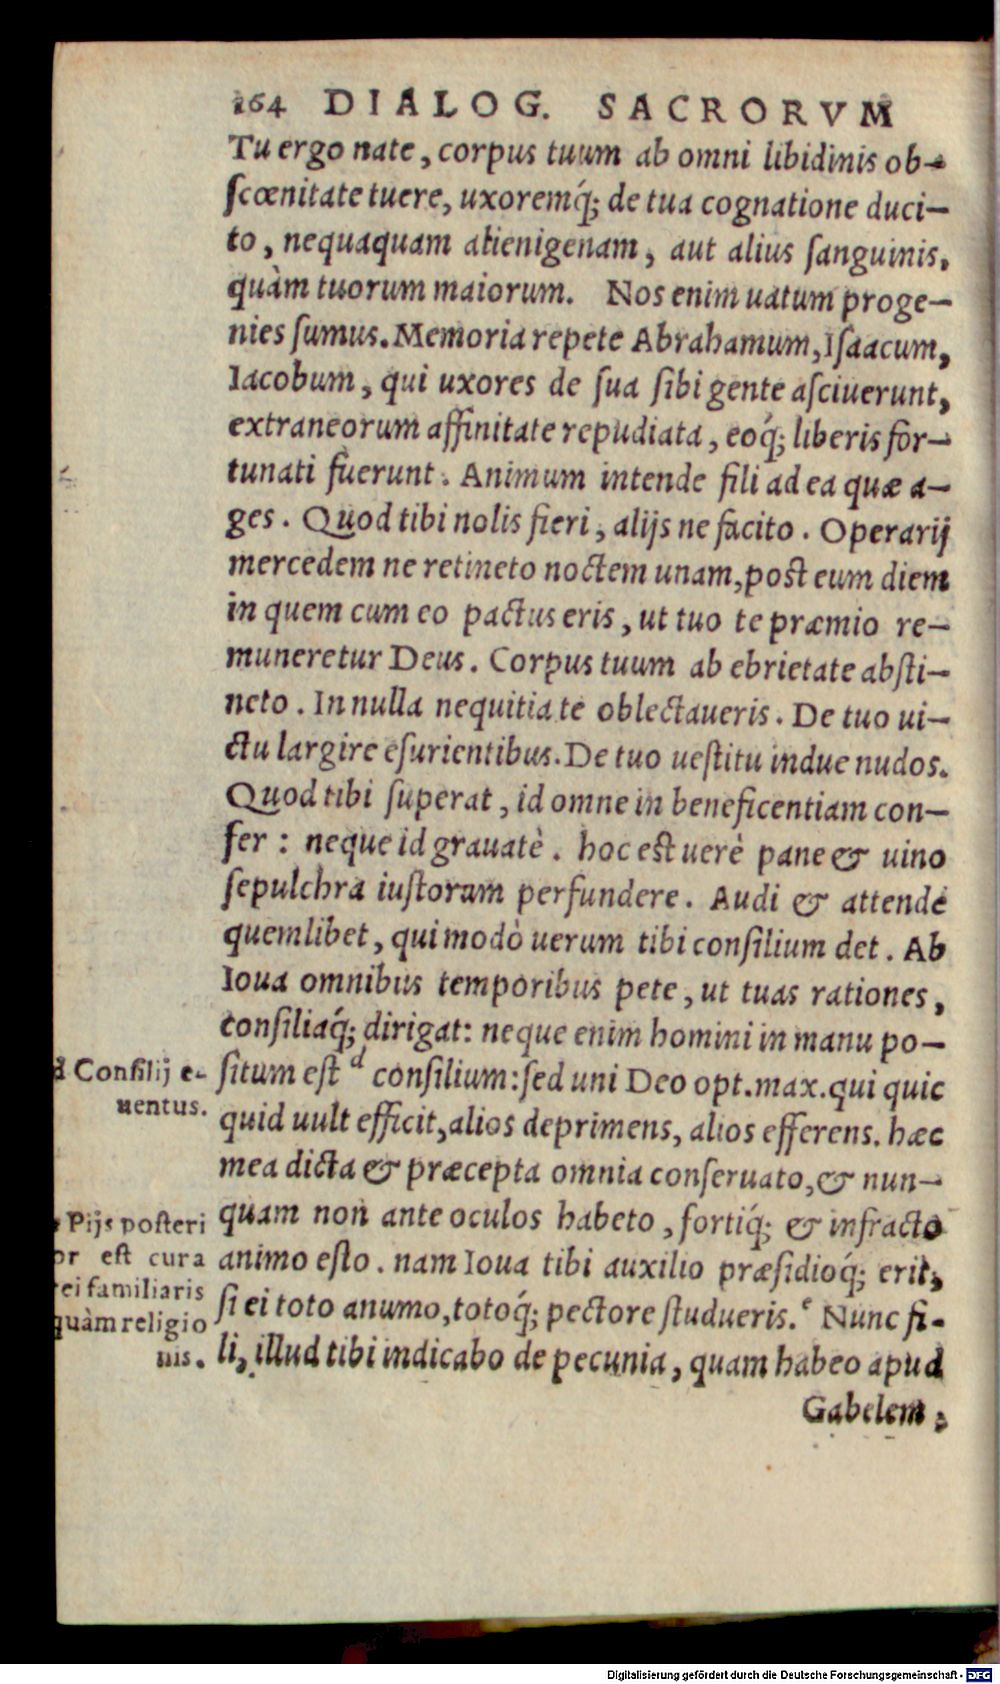 264 DIALOG. SACRORVM
Tu ergo nate, corpus tuum ab omni libidinis ob-
ſcœnitate tuere, uxoremq́; de tua cognatione duci-
to, nequaquam alienigenam, aut alius ſanguinis,
quàm tuorum maiorum. Nos enim uatum proge-
nies ſumus. Memoria repete Abrahamum, Iſaacum,
Iacobum, qui uxores de ſua ſibi gente aſciuerunt,
extraneorum affinitate repudiata, eoq́; liberis for-
tunati fuerunt. Animum intende fili ad ea quæ a-
ges. Quod tibi nolis fieri, alijs ne facito. Operarij
mercedem ne retineto noctem unam, post eum diem
in quem cum eo pactus eris, ut tuo te præmio re-
muneretur Deus. Corpus tuum ab ebrietate abſti-
neto. In nulla nequitia te oblectaueris. De tuo ui-
ctu largire eſurientibus. De tuo ueſtitu indue nudos.
Quod tibi ſuperat, id omne in beneficentiam con-
fer: neque id grauatè. hoc est uerè pane & uino
ſepulchra iuſtorum perfundere. Audi & attende
quemlibet, qui modò uerum tibi conſilium det. Ab
Ioua omnibus temporibus pete, ut tuas rationes,
conſiliaq́; dirigat: neque enim homini in manu po-
ſitum eſt d conſilium: ſed uni Deo opt. max. qui quic
quid uult efficit, alios deprimens, alios efferens. hæc
mea dicta & præcepta omnia conſeruato, & nun-
quam non ante oculos habeto, fortiq́; & infracto
animo eſto. nam Ioua tibi auxilio præſidioq́; erit,
ſi ei toto animo, totoq́; pectore ſtudueris. e Nunc fi-
li, illud tibi indicabo de pecunia, quam habeo apud
Gabelem,
d Conſilij e-
uentus.
Pijs poſteri
or eſt cura
rei familiaris
quàm religio
nis.
Digitalisierung gefördert durch die Deutsche Forschungsgemeinschaft - DFG